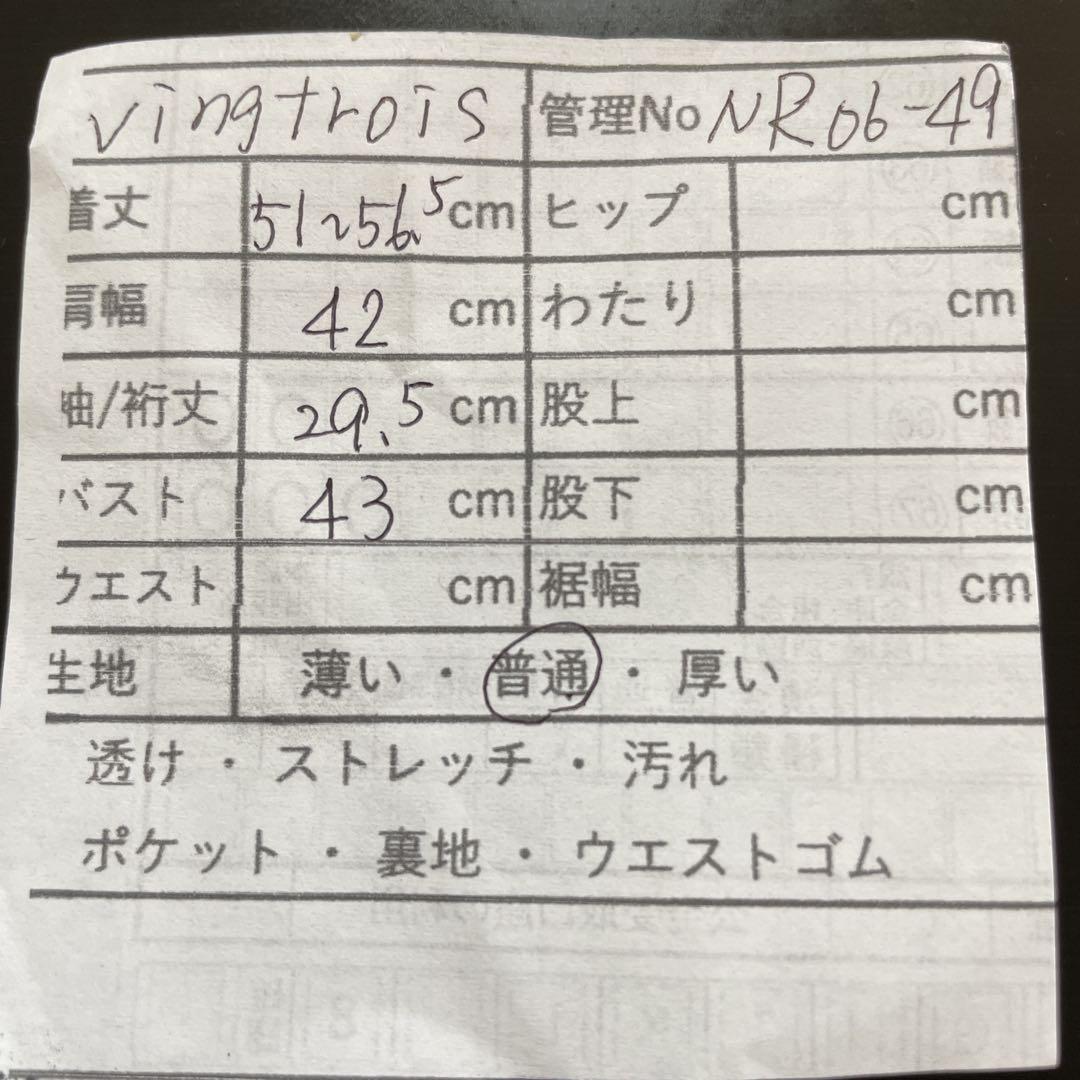 vingtrois 管理No NR06-49
着丈 51~56.5cm ヒップ cm
肩幅 42 cm わたり cm
袖/裄丈 29.5 cm 股上 cm
バスト 43 cm 股下 cm
ウエスト cm 裾幅 cm
生地 薄い・普通・厚い
透け・ストレッチ・汚れ
ポケット・裏地・ウエストゴム